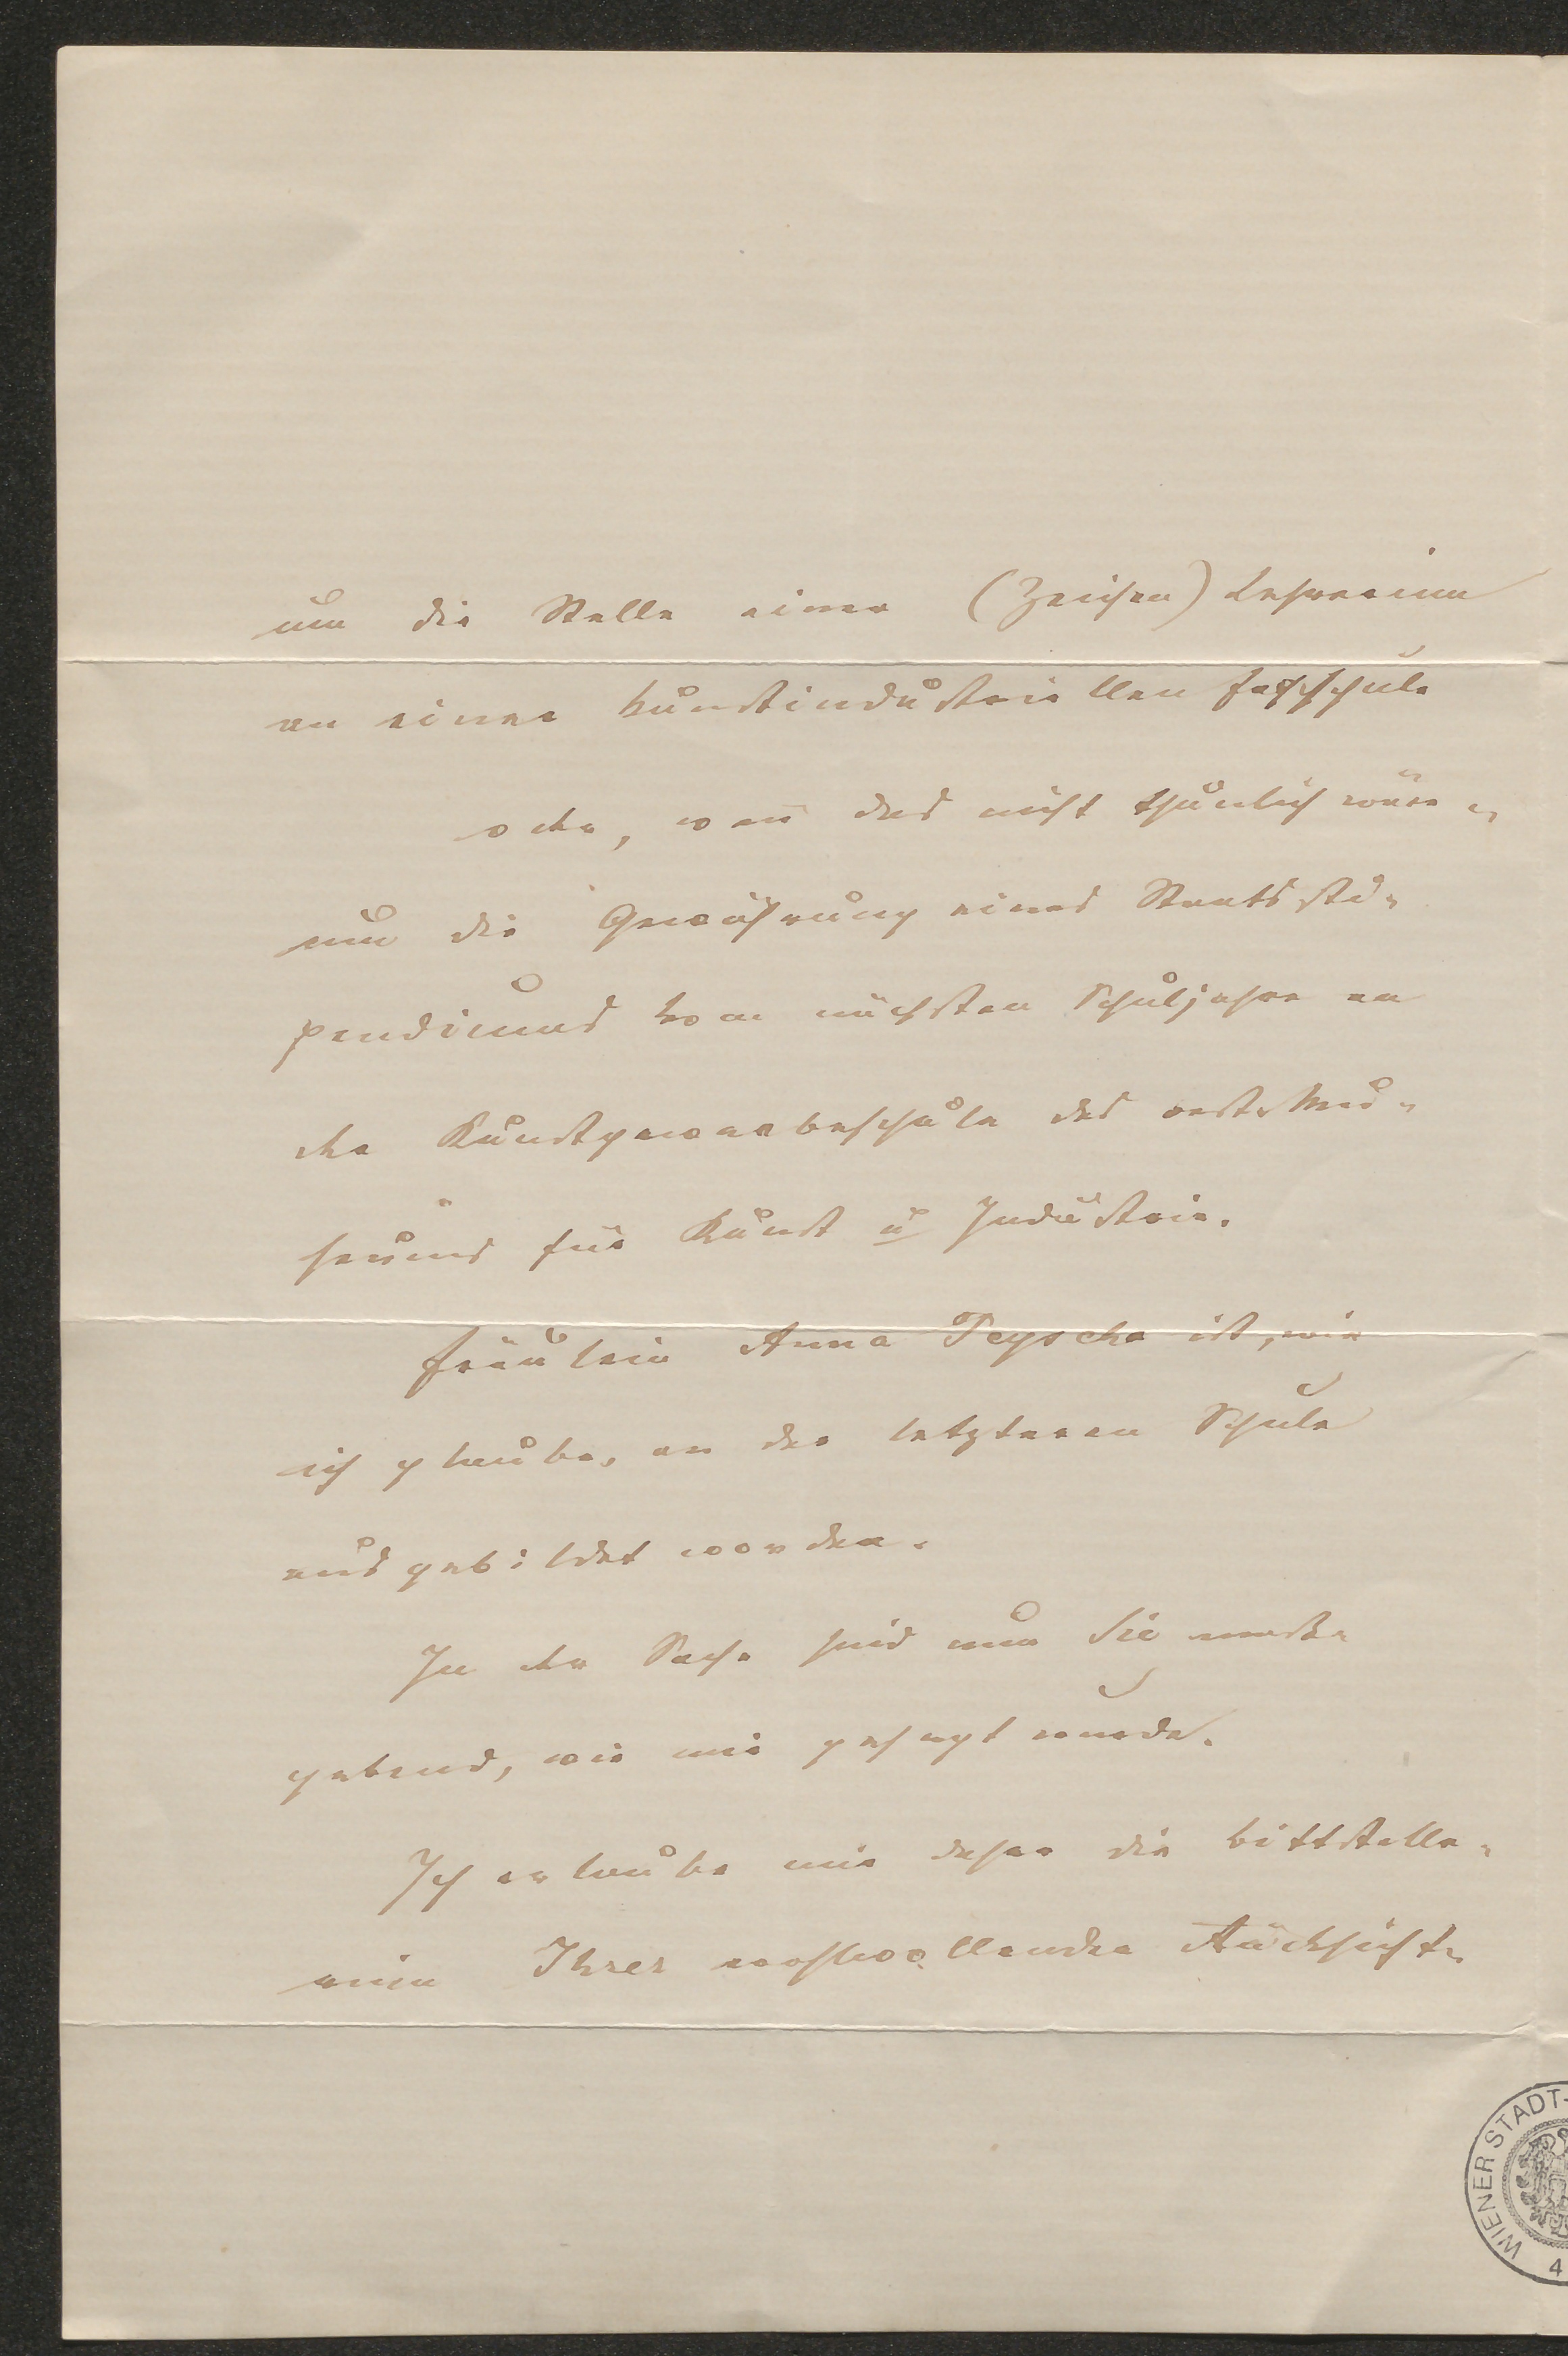 um die Stelle einer (Zeichen) Lehrerinn
an einer kunstindustriellen Fachschule
oder, wen̄ das nicht thunlich wäre,
um die Gewährung eines Staatssti-
pendiums vom nächsten Schuljahre an
der Kunstgewerbeschule des oest. Mu-
seums für Kunst u Industrie.
Fräulein Anna Peyscha ist, wie
ich glaube, an der letzteren Schule
ausgebildet worden.
In der Sache sind nun Sie mass-
gebend, wie mir gesagt wurde.
Ich erlaube mir daher die Bittstelle-
rin Ihrer wohlwollenden Rücksicht-
WIENER STADT-
4